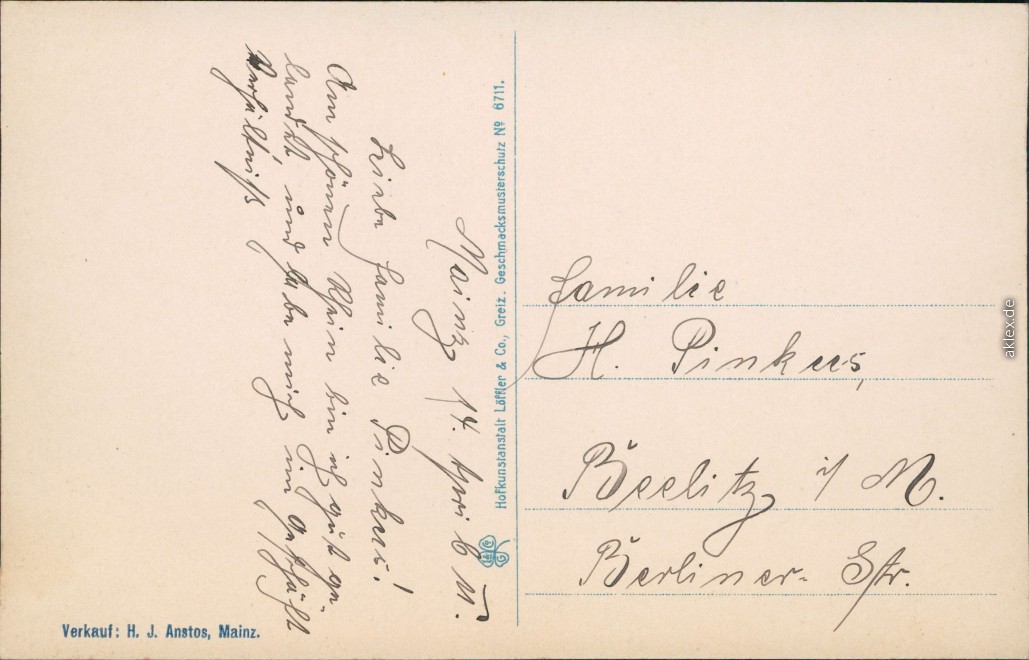 Mainz, 14. April 11.
Liebe Familie Pinkus!
Am schönen Rhein bin ich gut ge
landet und habe mich im Geschäft
Verhältniß
Hofkunstanstalt Löffler & Co., Greiz. Geschmacksmusterschutz No 6711.
Familie
H. Pinkus,
Beelitz i/M.
Berliner-Str.
Verkauf: H. J. Anstos, Mainz.
aklex.de